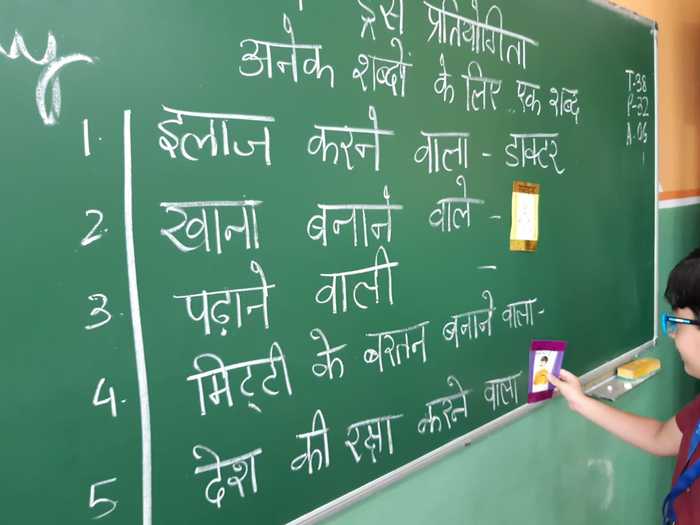 ड्रेस प्रतियोगिता
अनेक शब्दों के लिए एक शब्द
T-38
P-32
A-06
1. इलाज करने वाला - डाक्टर
2. खाना बनाने वाले -
3. पढ़ाने वाली -
4. मिट्टी के बरतन बनाने वाला -
5 देश की रक्षा करने वाला